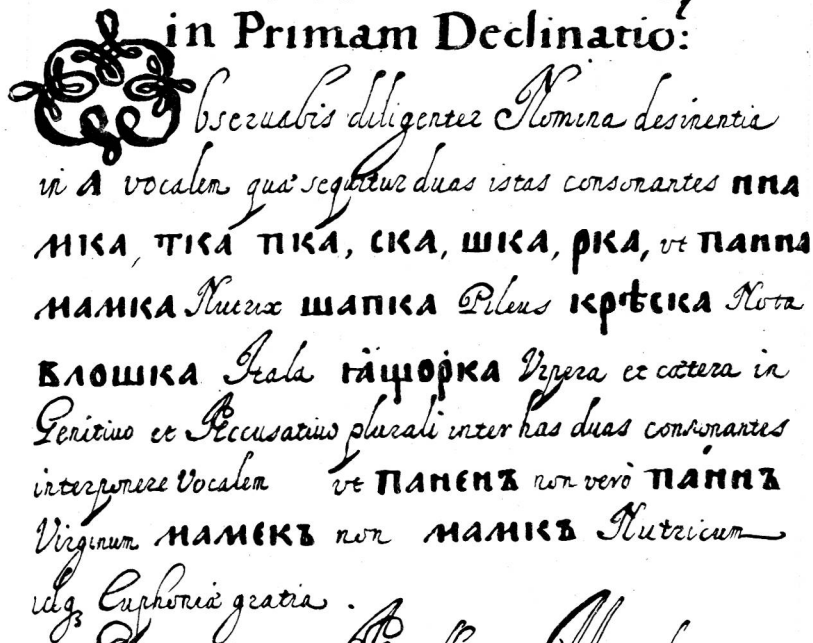 in Primam Declinatio:
Observabis diligenter Nomina desinentia
in А vocalem quæ sequitur duas istas consonantes нна
мка, тка пка, ска, шка, рка, ut панна
мамка Nutrix шапка Pileus крѣска Nota
влошка Itala ꙗщорка Vipera et cætera in
Genitivo et Accusativo plurali inter has duas consonantes
interponere Vocalem ut паненъ non verò паннъ
Virginum мамекъ non мамкъ Nutricum
idq; Euphoniæ gratia .